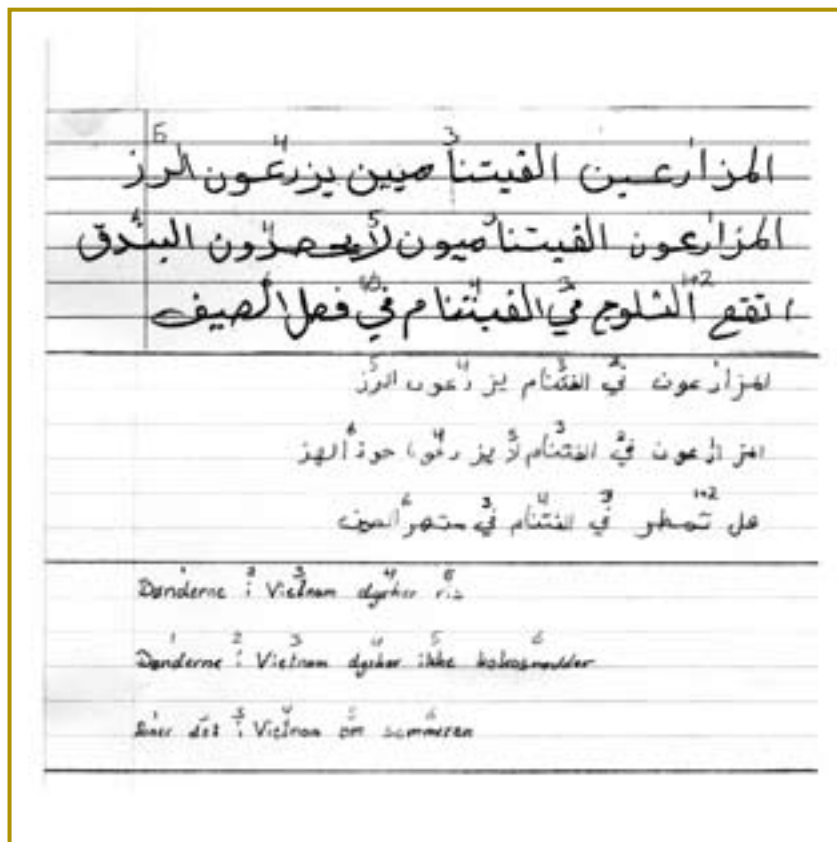 المزارعين الفيتناميين يزرعون الرز
المزارعون الفيتناميون لا يحصدون البندق
اتقع الثلوج في الفيتنام في فصل الصيف
المزارعون في الفتنام يزرعون الرز
المزارعون في الفتنام لا يزرعوا جوز الهز
هل تمطر في الفتنام في الصيف
1 2 3 4 5
Bønderne i Vietnam dyrker ris
1 2 3 4 5 6
Bønderne i Vietnam dyrker ikke kokosnødder
det i Vietnam om sommeren